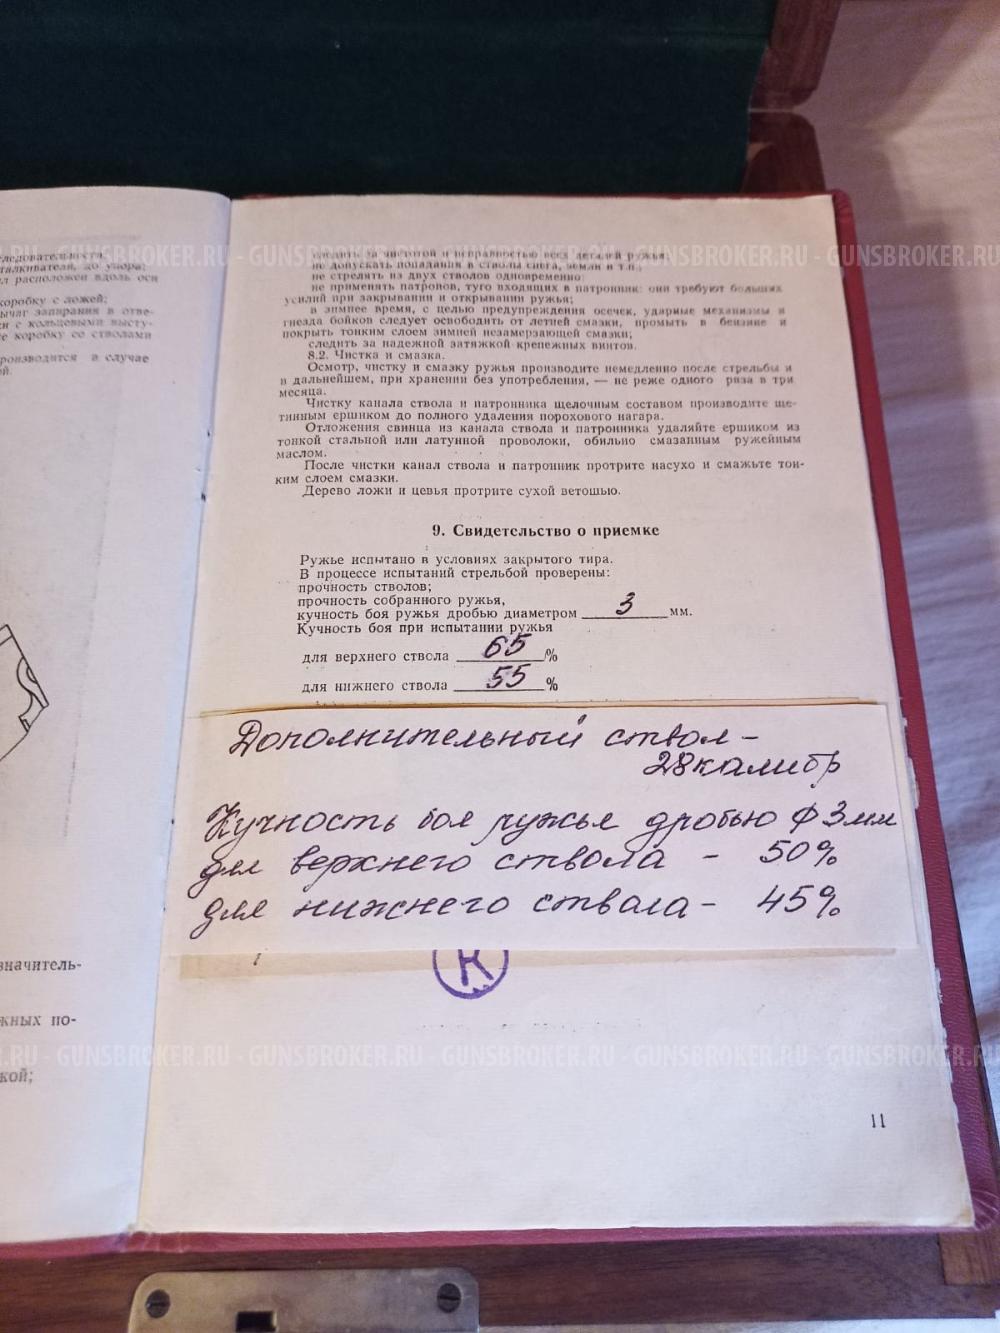 следовательности:
сталкивателя, до упора;
л расположен вдоль оси
коробку с ложей;
ычаг запирания в отве-
ки с кольцевыми высту-
е коробку со стволами
роизводится в случае
ей.
значитель-
жных по-
кой;
следить за чистотой и исправностью всех деталей ружья;
не допускать попадания в стволы снега, земли и т.п.;
не стрелять из двух стволов одновременно;
не применять патронов, туго входящих в патронник: они требуют больших
усилий при закрывании и открывании ружья;
в зимнее время, с целью предупреждения осечек, ударные механизмы и
гнезда бойков следует освободить от летней смазки, промыть в бензине и
покрыть тонким слоем зимней незамерзающей смазки;
следить за надежной затяжкой крепежных винтов.
8.2. Чистка и смазка.
Осмотр, чистку и смазку ружья производите немедленно после стрельбы и
в дальнейшем, при хранении без употребления, — не реже одного раза в три
месяца.
Чистку канала ствола и патронника щелочным составом производите ще-
тинным ершиком до полного удаления порохового нагара.
Отложения свинца из канала ствола и патронника удаляйте ершиком из
тонкой стальной или латунной проволоки, обильно смазанным ружейным
маслом.
После чистки канал ствола и патронник протрите насухо и смажьте тон-
ким слоем смазки.
Дерево ложи и цевья протрите сухой ветошью.
9. Свидетельство о приемке
Ружье испытано в условиях закрытого тира.
В процессе испытаний стрельбой проверены:
прочность стволов;
прочность собранного ружья,
кучность боя ружья дробью диаметром 3 мм.
Кучность боя при испытании ружья
для верхнего ствола 65 %
для нижнего ствола 55 %
Дополнительный ствол -
28 калибр
Кучность боя ружья дробью Ф 3 мм
для верхнего ствола - 50%
для нижнего ствола - 45%
К
11
GUNSBROKER.RU - GUNSBROKER.RU - GUNSBROKER.RU - GUNSBROKER.RU - GUNSBROKER.RU
RU - GUNSBROKER.RU - GUNSBROKER.RU - GUNSBROKER.RU - GUNSBROKER.RU - GUNSBROKER.RU